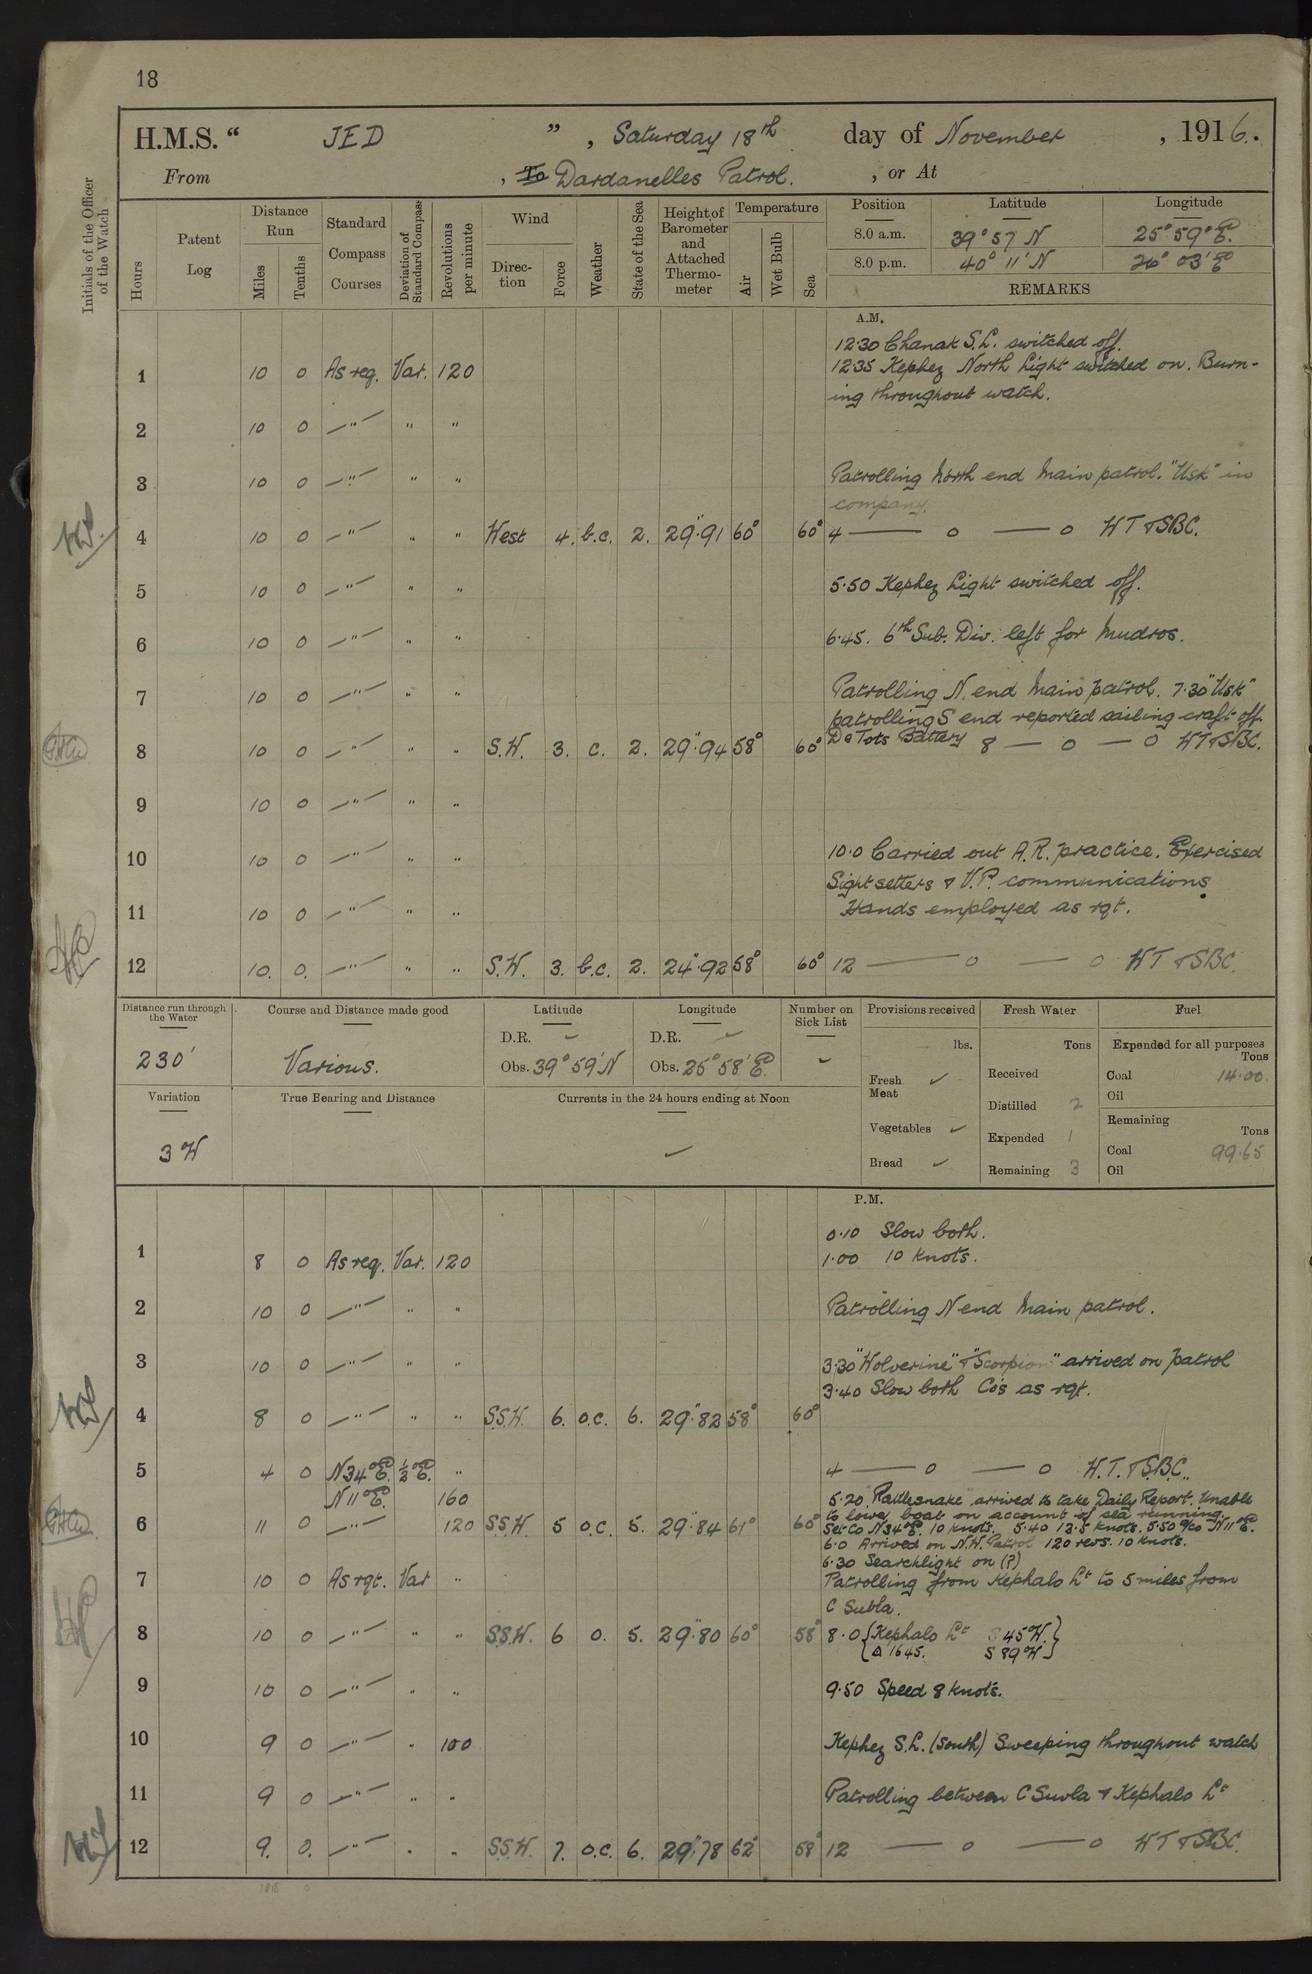 18
H.M.S. “ JED ” , Saturday 18th day of November , 1916.
From , To Dardanelles Patrol. , or At
Initials of the Officer of the Watch
Hours
Patent Log
Distance Run
Miles
Tenths
Standard Compass Courses
Deviation of Standard Compass
Revolutions per minute
Wind
Direction
Force
Weather
State of the Sea
Height of Barometer and Attached Thermometer
Temperature
Air
Wet Bulb
Sea
Position Latitude Longitude
8.0 a.m. 39° 57 N 25° 59° E.
8.0 p.m. 40° 11' N 26° 03' E
REMARKS
A.M.
12.30 Chanak S.L. switched off.
1 10 0 As req. Var. 120 12.35 Kephez North Light switched on. Burn-
ing throughout watch.
2 10 0 —"— " "
3 10 0 —"— " " Patrolling North end Main patrol. "Usk" in
company.
4 10 0 —"— " " West 4. b.c. 2. 29".91 60° 60° 4 — o — o HT & SBC.
5 10 0 —"— " " 5.50 Kephez Light switched off.
6 10 0 —"— " " 6.45. 6th Sub. Div. left for Mudros.
7 10 0 —"— " " Patrolling N. end Main patrol. 7.30 "Usk"
patrolling S end reported sailing craft off
8 10 0 —"— " " S.W. 3. c. 2. 29".94 58° 60° De Tots Battery 8 — o — o HT & SBC.
9 10 0 —"— " "
10 10 0 —"— " " 10.0 Carried out A.R. practice. Exercised
Sight setters & V.P. communications
11 10 0 —"— " " Hands employed as rqt.
12 10. 0. —"— " " S.W. 3. b.c. 2. 24".92 58° 60° 12 — o — o HT & SBC.
Distance run through the Water
230'
Course and Distance made good
Various.
Latitude
D.R. ✓
Obs. 39° 59' N
Longitude
D.R. ✓
Obs. 25° 58' E.
Number on Sick List
✓
Provisions received
lbs.
Fresh Meat ✓
Vegetables ✓
Bread ✓
Fresh Water
Tons
Received
Distilled 2
Expended 1
Remaining 3
Fuel
Expended for all purposes
Tons
Coal 14.00.
Oil
Remaining
Tons
Coal 99.65
Oil
Variation
3 W
True Bearing and Distance
Currents in the 24 hours ending at Noon
✓
P.M.
0.10 Slow both.
1 8 0 As req. Var. 120 1.00 10 knots.
2 10 0 —"— " " Patrolling N end Main patrol.
3 10 0 —"— " " 3.30 "Wolverine" & "Scorpion" arrived on patrol
3.40 Slow both Co's as rqt.
4 8 0 —"— " " S.S.W. 6. o.c. 6. 29".82 58° 60°
5 4 0 N34°E. ½°E. " 4 — o — o H.T. & S.B.C.
N11°E. 160 5.20 "Rattlesnake" arrived to take Daily Report. Unable
to lower boat on account of sea running.
6 11 0 —"— 120 S.S.W. 5 o.c. 5. 29".84 61° 60° Set Co N34°E. 10 knots. 5.40 13.5 knots. 5.50 a/co N11°E.
6.0 Arrived on N.W. Patrol 120 revs. 10 knots.
6.30 Searchlight on (P)
7 10 0 As rqt. Var " Patrolling from Kephalo Lt to 5 miles from
C Suvla.
8 10 0 —"— " " S.S.W. 6 o. 5. 29".80 60° 58° 8.0 { Kephalo Lt S 45°W. }
Δ 1645. S 89°W
9 10 0 —"— " " 9.50 Speed 8 knots.
10 9 0 —"— " 100 Kephez S.L. (South) Sweeping throughout watch
11 9 0 —"— " " Patrolling between C Suvla & Kephalo Lt
12 9. 0. —"— " " S.S.W. 7. o.c. 6. 29".78 62° 58° 12 — o — o HT & SBC.